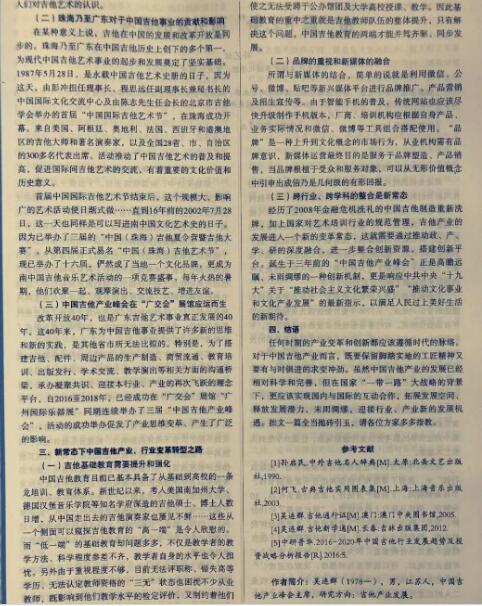 人们对吉他艺术的认识。
（二）珠海乃至广东对于中国吉他事业的贡献和影响
在某种意义上说，吉他在中国的发展和改革开放是同
步的。珠海乃至广东在中国吉他历史上创下的多个第一，
为现代中国吉他艺术事业的起步和发展奠定了坚实基础。
1987年5月28日，是永载中国吉他艺术史册的日子。因为
这天，由彭冲担任理事长、程思远任副理事长兼秘书长的
中国国际文化交流中心及由陈志先生任会长的北京市吉他
学会举办的首届“中国国际吉他艺术节”，在珠海成功开
幕。来自美国、阿根廷、奥地利、法国、西班牙和港澳地
区的吉他大师和著名演奏家，以及全国28省、市、自治区
的300多名代表出席。活动推动了中国吉他艺术的普及和提
高，促进国际间吉他艺术的交流，有着重要的文化价值和
历史意义。
首届中国国际吉他艺术节结束后，这个规模大、影响
广的艺术活动便日渐式微……直到16年前的2002年7月28
日，这一天也同样是可以写进南中国文化艺术史的日子。
因为已举办了三届的“中国（珠海）吉他夏令营暨吉他大
赛”，从第四届正式易名“中国（珠海）吉他艺术节”，
现已举办了十六届。俨然成了当地一个文化品牌，更成为
南中国吉他音乐艺术活动的一项竞赛盛事，每年火热的暑
期，他们欢聚一起、观摩演出、交流技艺、增进友谊。
（三）中国吉他产业峰会在“广交会”展馆应运而生
改革开放40年，也是广东吉他艺术事业真正发展的40
年。这40年来，广东为中国吉他事业提供了许多新的思维
和新的实践，是其他省市所无法比拟的。特别是，为了搭
建吉他、配件、周边产品的生产制造、商贸流通、教育培
训、出版发行、学术交流、教学演出等相关方面的沟通桥
梁，承办凝聚共识、迎接本行业、产业的再次飞跃的理念
平台，自2016至2018年，已经成功在“广交会”展馆“广
州国际乐器展”同期连续举办了三届“中国吉他产业峰
会”，活动的成功举办促发了产业思维变革、产生了广泛
的影响。
三、新常态下中国吉他产业、行业变革转型之路
（一）吉他基础教育需要提升和强化
中国吉他教育目前已基本具备了从基础到高校的一条
龙培训、教育体系。新世纪以来，考入美国南加州大学、
德国汉堡音乐学院等知名学府深造的吉他硕士、博士人数
日增，从中国走出去的吉他演奏家也屡见不鲜……这些从
一个侧面可以窥探吉他教育的“高一端”是令人欣慰的。
而“低一端”的基础教育却问题多多，不仅是教学者的教
学方法、科学程度参差不齐，教学者自身的水平也令人担
忧。另外由于重视程度不够，目前无法评职称、镀头高等
学历、无法认定教师资格的“三无”状态也困扰不少从业
教师，既影响到他们教学水平的检定评价，又制约着他们
使之无法受聘于公办馆团及大学高校授课、教学。因此基
础教育的重中之重就是吉他教师队伍的整体提升，只有解
决这个问题，中国吉他教育的两端才能并驾齐驱、同步发
展。
（二）品牌的重视和新媒体的融合
所谓与新媒体的结合，简单的说就是利用微信、公
号、微博、贴吧等新兴媒体平台进行品牌推广、产品营销
及招生宣传等。由于智能手机的普及，传统网站也应该尽
快升级制作手机版本，厂商、培训机构应根据自身产品、
业务实际情况和微信、微博等工具组合搭配使用。“品
牌”是一种上升到文化概念的市场行为，从业机构需有品
牌意识，新媒体运营最终目的是服务于品牌塑造、产品销
售。当品牌根植于受众和服务对象，可以从无形价值概念
中引申出成倍乃是几何级的有形回报。
（三）跨行业、跨学科的整合是新常态
经历了2008年金融危机洗礼的中国吉他制造重新洗
牌，加上国家对艺术培训行业的规范管理，吉他产业的
发展进入一个新的变革常态。这就需要通过推动政、产、
学、研的深度融合，进一步整合创新资源，搭建创新平
台。诞生于三年前的“中国吉他产业峰会”正是高瞻远
瞩、未雨绸缪的一种创新机制，更是响应中共中央“十九
大”关于“推动社会主义文化繁荣兴盛”“推动文化事业
和文化产业发展”的最新指示，以满足人民过上美好生活
的新期待。
四、结语
任何时期的产业变革和创新都应该遵循时代的脉络，
对于中国吉他产业而言，既要保留脚踏实地的工匠精神又
要有与时俱进的求变冲劲。虽然中国吉他产业的发展已经
相对科学和完善，但在国家“一带一路”大战略的背景
下，更应该实现国内与国际的互动合作，拓展发展空间、
释放发展潜力，未雨绸缪，迎接行业、产业新的发展机
遇。拙文一篇全当抛砖引玉，请各位方家多多指教。
参考文献
[1]孙启民.中外吉他名人辞典[M].太原:北岳文艺出版
社,1990.
[2]何飞.古典吉他实用图表集[M].上海:上海音乐出版
社,2003
[3]吴进群.吉他通行证[M].澳门:澳门中央图书馆,2005.
[4]吴进群.吉他新学通[M].长春:吉林出版集团,2012.
[5]中研普华.2016-2020年中国吉他行业发展趋势及投
资战略分析报告[R].2016:5.
作者简介：吴进群（1978—），男，江苏人，中国吉
他产业峰会主席，研究方向：吉他产业发展。